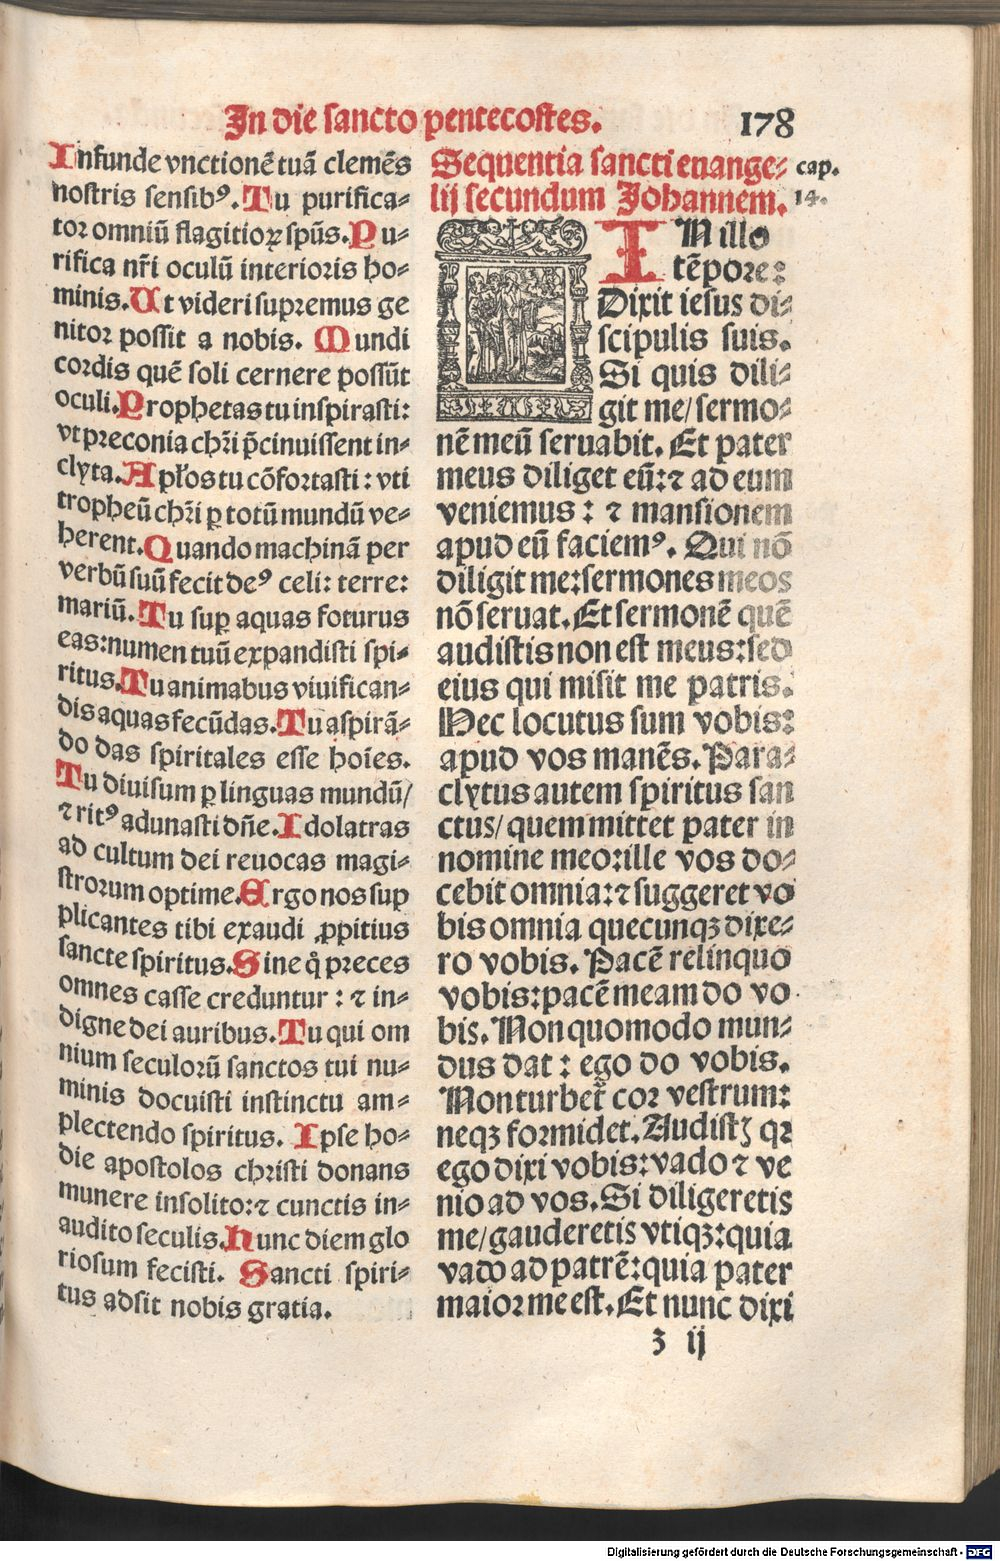 In die sancto pentecostes.
178
Infunde vnctionē tuā clemēs
nostris sensibꝰ. Tu purifica⸗
tor omniū flagitioꝝ spūs. Pu⸗
rifica nr̄i oculū interioris ho⸗
minis. Ut videri supremus ge
nitor possit a nobis. Mundi
cordis quē soli cernere possūt
oculi. Prophetas tu inspirasti:
vt preconia chr̄i p̄cinuissent in⸗
clyta. Apƚos tu cōfortasti: vti
tropheū chr̄i ꝑ totū mundū ve⸗
herent. Quando machinā per
verbū suū fecit deꝰ celi: terre:
mariū. Tu suꝑ aquas foturus
eas: numen tuū expandisti spi⸗
ritus. Tu animabus viuifican⸗
dis aquas fecūdas. Tu aspirā⸗
do das spiritales esse hoīes.
Tu diuisum ꝑ linguas mundū/
⁊ ritꝰ adunasti dn̄e. Idolatras
ad cultum dei reuocas magi⸗
strorum optime. Ergo nos sup
plicantes tibi exaudi ꝓpitius
sancte spiritus. Sine q̄ preces
omnes casse creduntur: ⁊ in⸗
digne dei auribus. Tu qui om
nium seculorū sanctos tui nu⸗
minis docuisti instinctu am⸗
plectendo spiritus. Ipse ho⸗
die apostolos christi donans
munere insolito: ⁊ cunctis in⸗
audito seculis. Hunc diem glo
riosum fecisti. Sancti spiri⸗
tus adsit nobis gratia.
Sequentia sancti euange⸗
lij secundum Johannem.
cap.
14.
IN illo
tēpore:
Dixit iesus di⸗
scipulis suis.
Si quis dili⸗
git me/ sermo⸗
nē meū seruabit. Et pater
meus diliget eū: ⁊ ad eum
veniemus: ⁊ mansionem
apud eū faciemꝰ. Qui nō
diligit me: sermones meos
nō seruat. Et sermonē quē
audistis non est meus: sed
eius qui misit me patris.
Hec locutus sum vobis:
apud vos manēs. Para⸗
clytus autem spiritus san
ctus/ quem mittet pater in
nomine meo: ille vos do⸗
cebit omnia: ⁊ suggeret vo
bis omnia quecunqꝫ dixe⸗
ro vobis. Pacē relinquo
vobis: pacē meam do vo
bis. Non quomodo mun⸗
dus dat: ego do vobis.
Non turbet̄ cor vestrum:
neqꝫ formidet. Audistꝫ qꝛ
ego dixi vobis: vado ⁊ ve
nio ad vos. Si diligeretis
me/ gauderetis vtiqꝫ: quia
vado ad patrē: quia pater
maior me est. Et nunc dixi
z ij
Digitalisierung gefördert durch die Deutsche Forschungsgemeinschaft - DFG